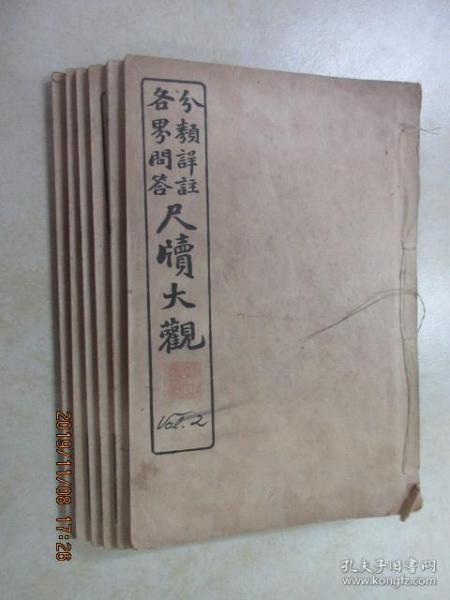 分類詳註
各界問答
尺牘大觀
Vol. 2
2019/11/08 17:26
孔夫子旧书网
www.kongfz.com